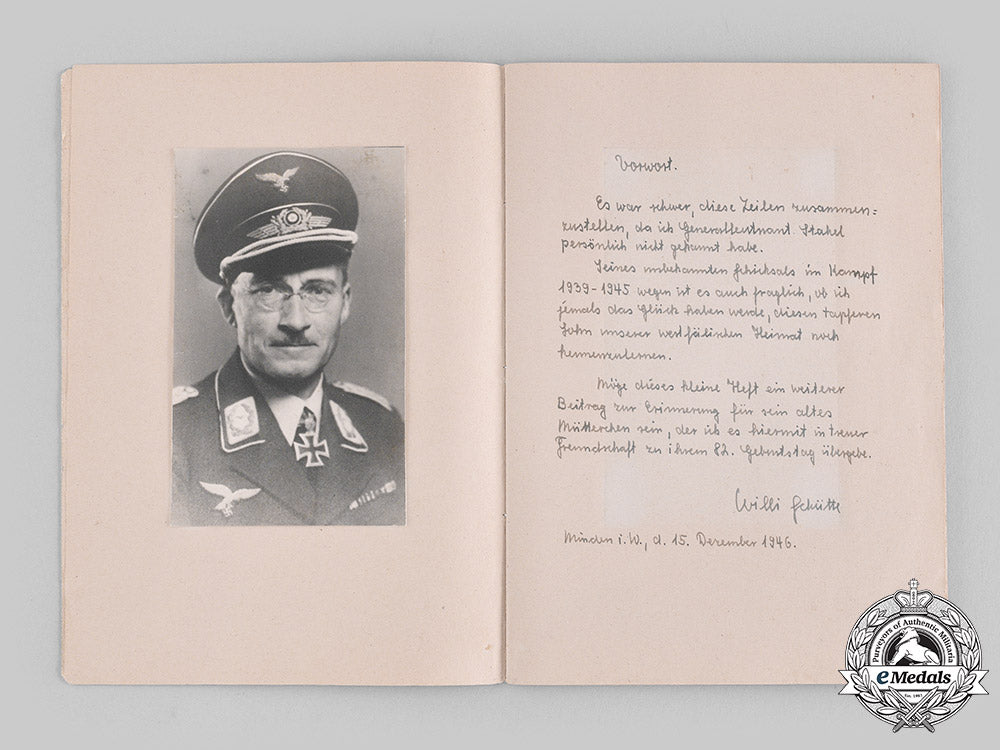 Vorwort.
Es war schwer, diese Zeilen zusammen=
zustellen, da ich Generalleutnant Stahel
persönlich nicht gekannt habe.
Seines unbekannten Schicksals im Kampf
1939-1945 wegen ist es auch fraglich, ob ich
jemals das Glück haben werde, diesen tapferen
Sohn unserer westfälischen Heimat noch
kennenzulernen.
Möge dieses kleine Heft ein weiterer
Beitrag zur Erinnerung für sein altes
Mütterchen sein, der ich es hiermit in treuer
Freundschaft zu ihrem 82. Geburtstag übergebe.
Willi Schütte
Minden i.W., d. 15. Dezember 1946.
Purveyors of Authentic Militaria
eMedals